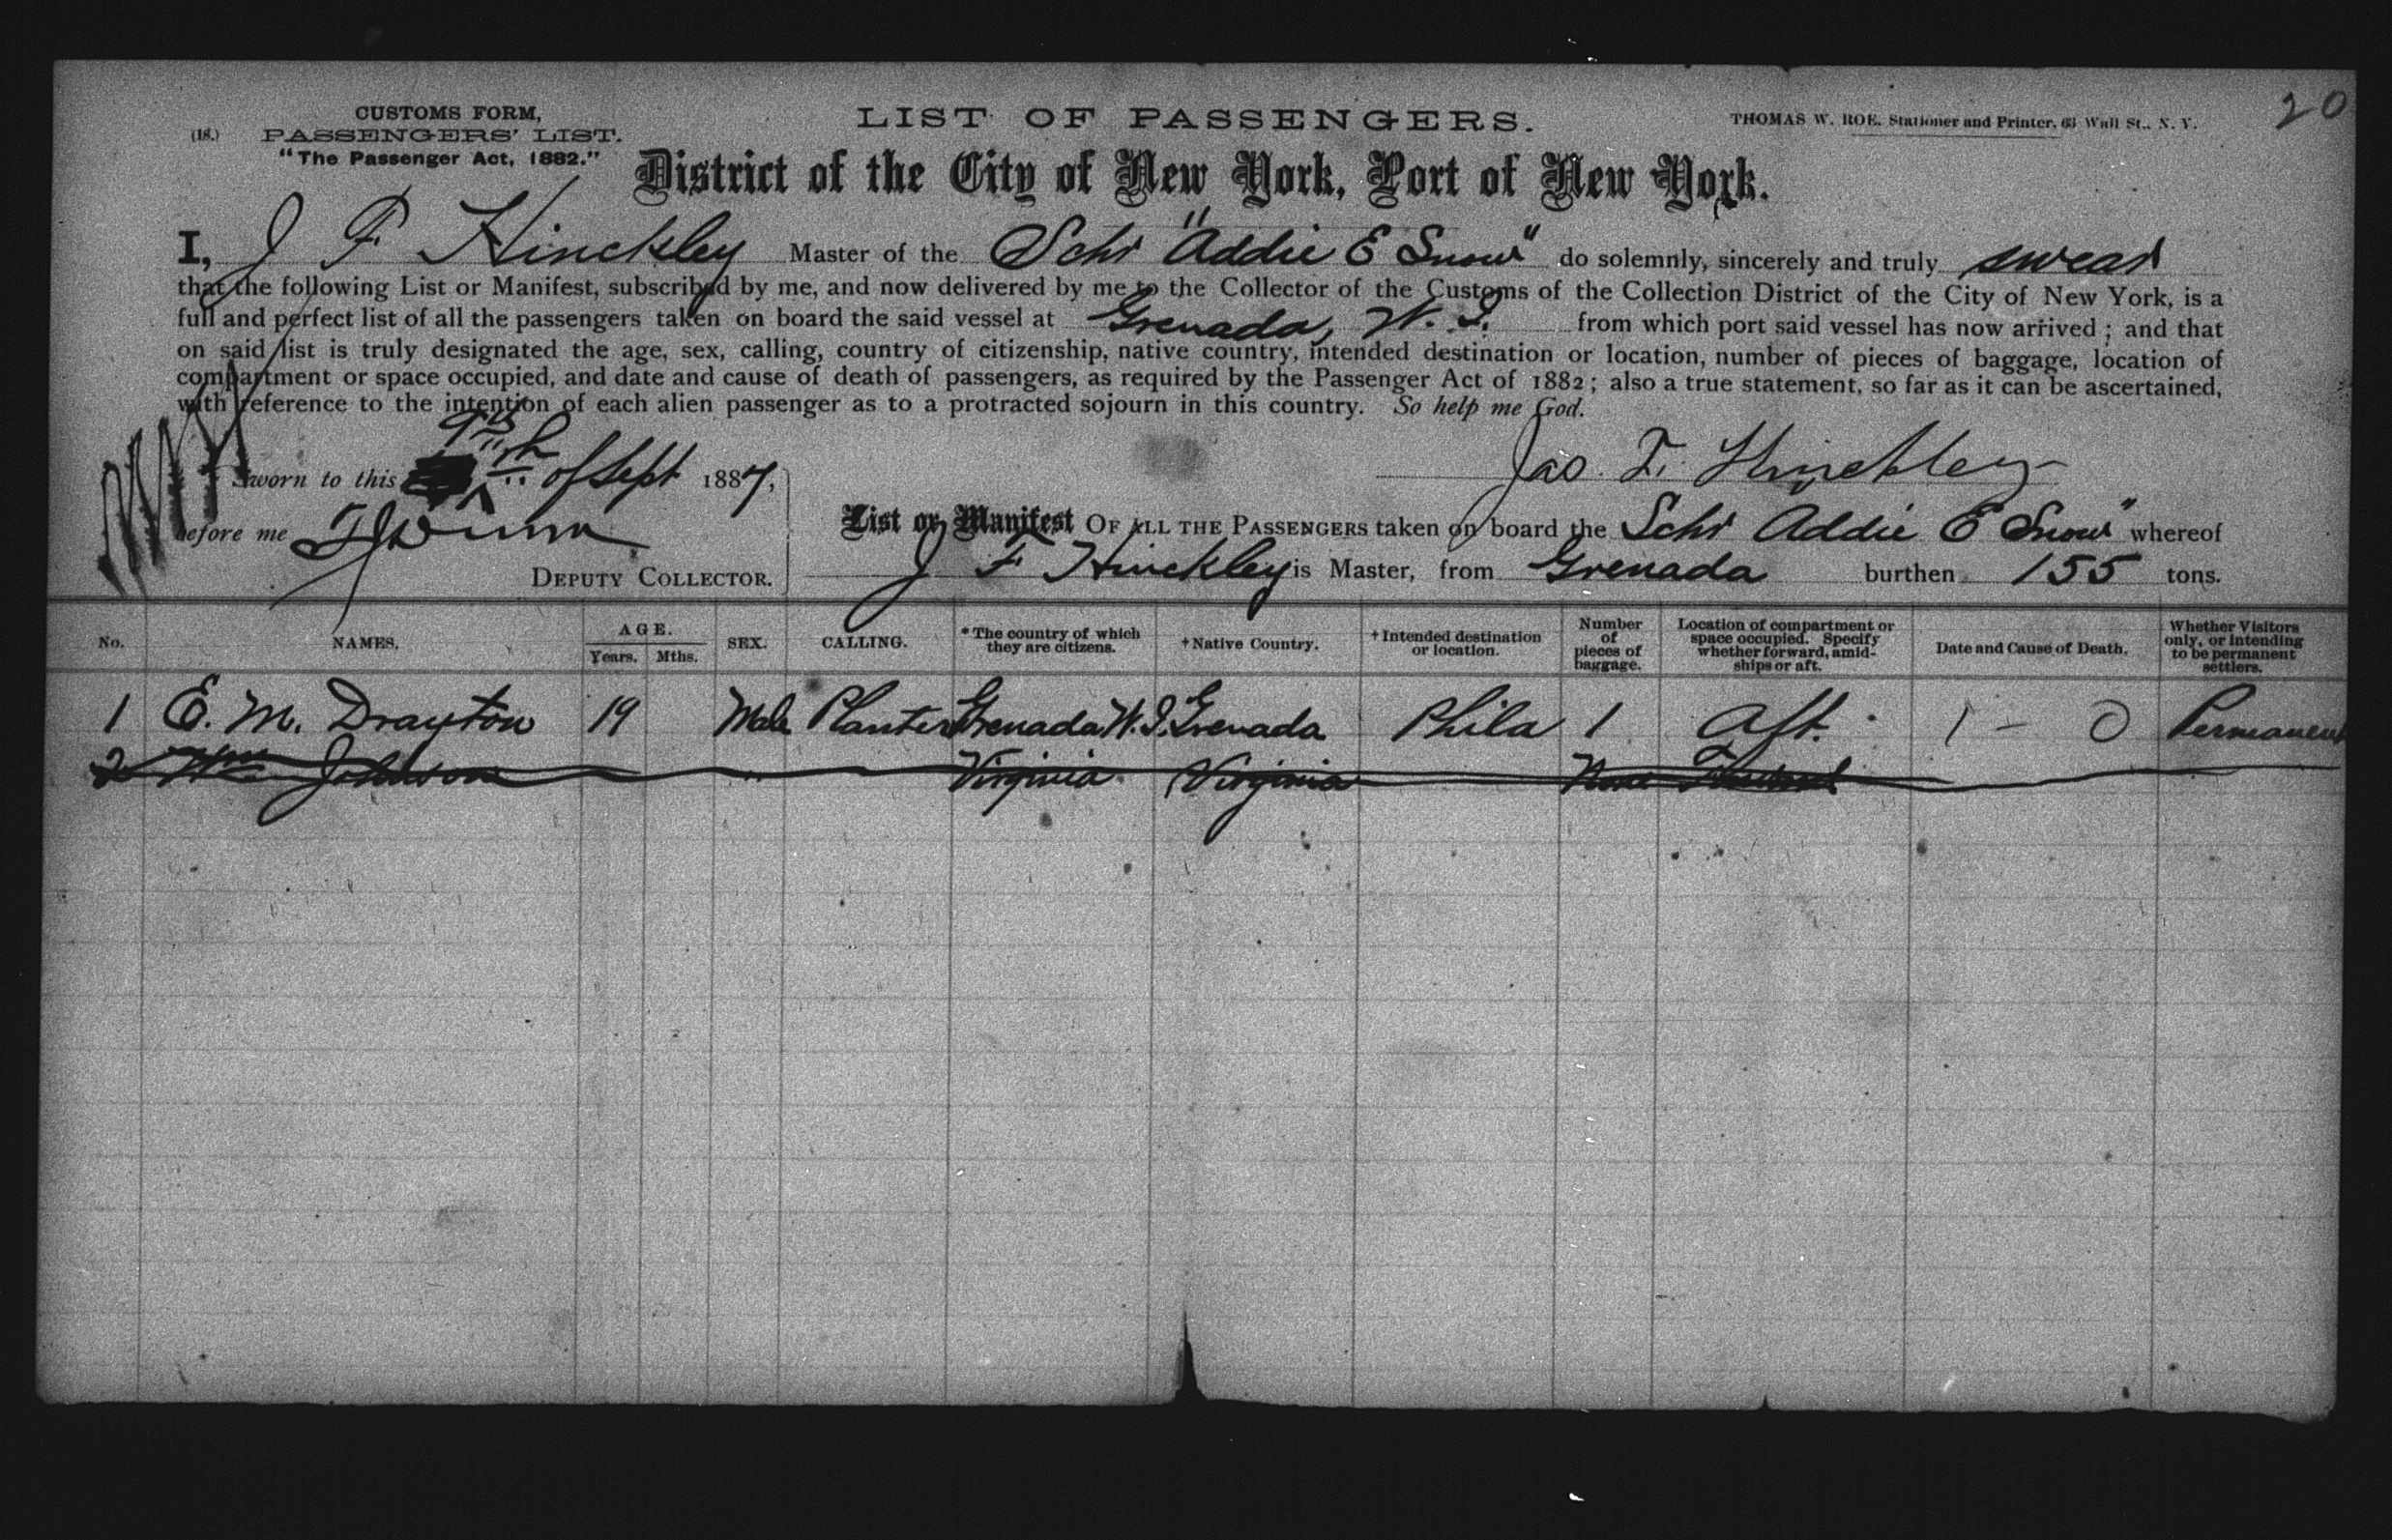 20
CUSTOMS FORM,
(18.) PASSENGERS' LIST.
"The Passenger Act, 1882."
LIST OF PASSENGERS.
THOMAS W. ROE, Stationer and Printer, 63 Wall St., N. Y.
District of the City of New York, Port of New York.
I, J F Hinckley Master of the Schr "Addie E Snow" do solemnly, sincerely and truly swear
that the following List or Manifest, subscribed by me, and now delivered by me to the Collector of the Customs of the Collection District of the City of New York, is a
full and perfect list of all the passengers taken on board the said vessel at Grenada, W. I. from which port said vessel has now arrived; and that
on said list is truly designated the age, sex, calling, country of citizenship, native country, intended destination or location, number of pieces of baggage, location of
compartment or space occupied, and date and cause of death of passengers, as required by the Passenger Act of 1882; also a true statement, so far as it can be ascertained,
with reference to the intention of each alien passenger as to a protracted sojourn in this country. So help me God.
Sworn to this 9th of Sept 1887,
Jas. F. Hinckley
before me
DEPUTY COLLECTOR.
List or Manifest OF ALL THE PASSENGERS taken on board the Schr Addie E Snow" whereof
J F Hinckley is Master, from Grenada burthen 155 tons.
No. NAMES. AGE. Years. Mths. SEX. CALLING. *The country of which they are citizens. †Native Country. †Intended destination or location. Number of pieces of baggage. Location of compartment or space occupied. Specify whether forward, amidships or aft. Date and Cause of Death. Whether Visitors only, or intending to be permanent settlers.
1 E. M. Drayton 19 Male Planter Grenada W. I. Grenada Phila 1 Aft. 1 - 0 Permanent
2 Wm Johnson " Virginia Virginia None Forward